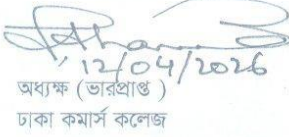 12/04/2026
অধ্যক্ষ (ভারপ্রাপ্ত )
ঢাকা কমার্স কলেজ